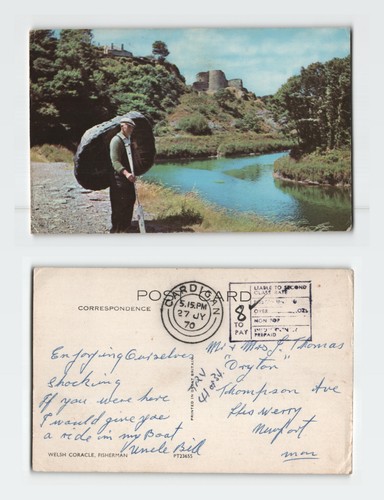 POST CARD
CORRESPONDENCE
CARDIGAN
5.15 PM
27 JY
70
8
TO
PAY
LIABLE TO SECOND
CLASS RATE
OVER
NON POP
PREPAID
Enjoying Ourselves
Shocking
If you were here
I would give you
a ride in my Boat
Uncle Bill
PRINTED IN GREAT BRITAIN
Mr & Mrs J. Thomas
"Dryton"
Thompson Ave
Newport
mon
WELSH CORACLE, FISHERMAN
PT23655